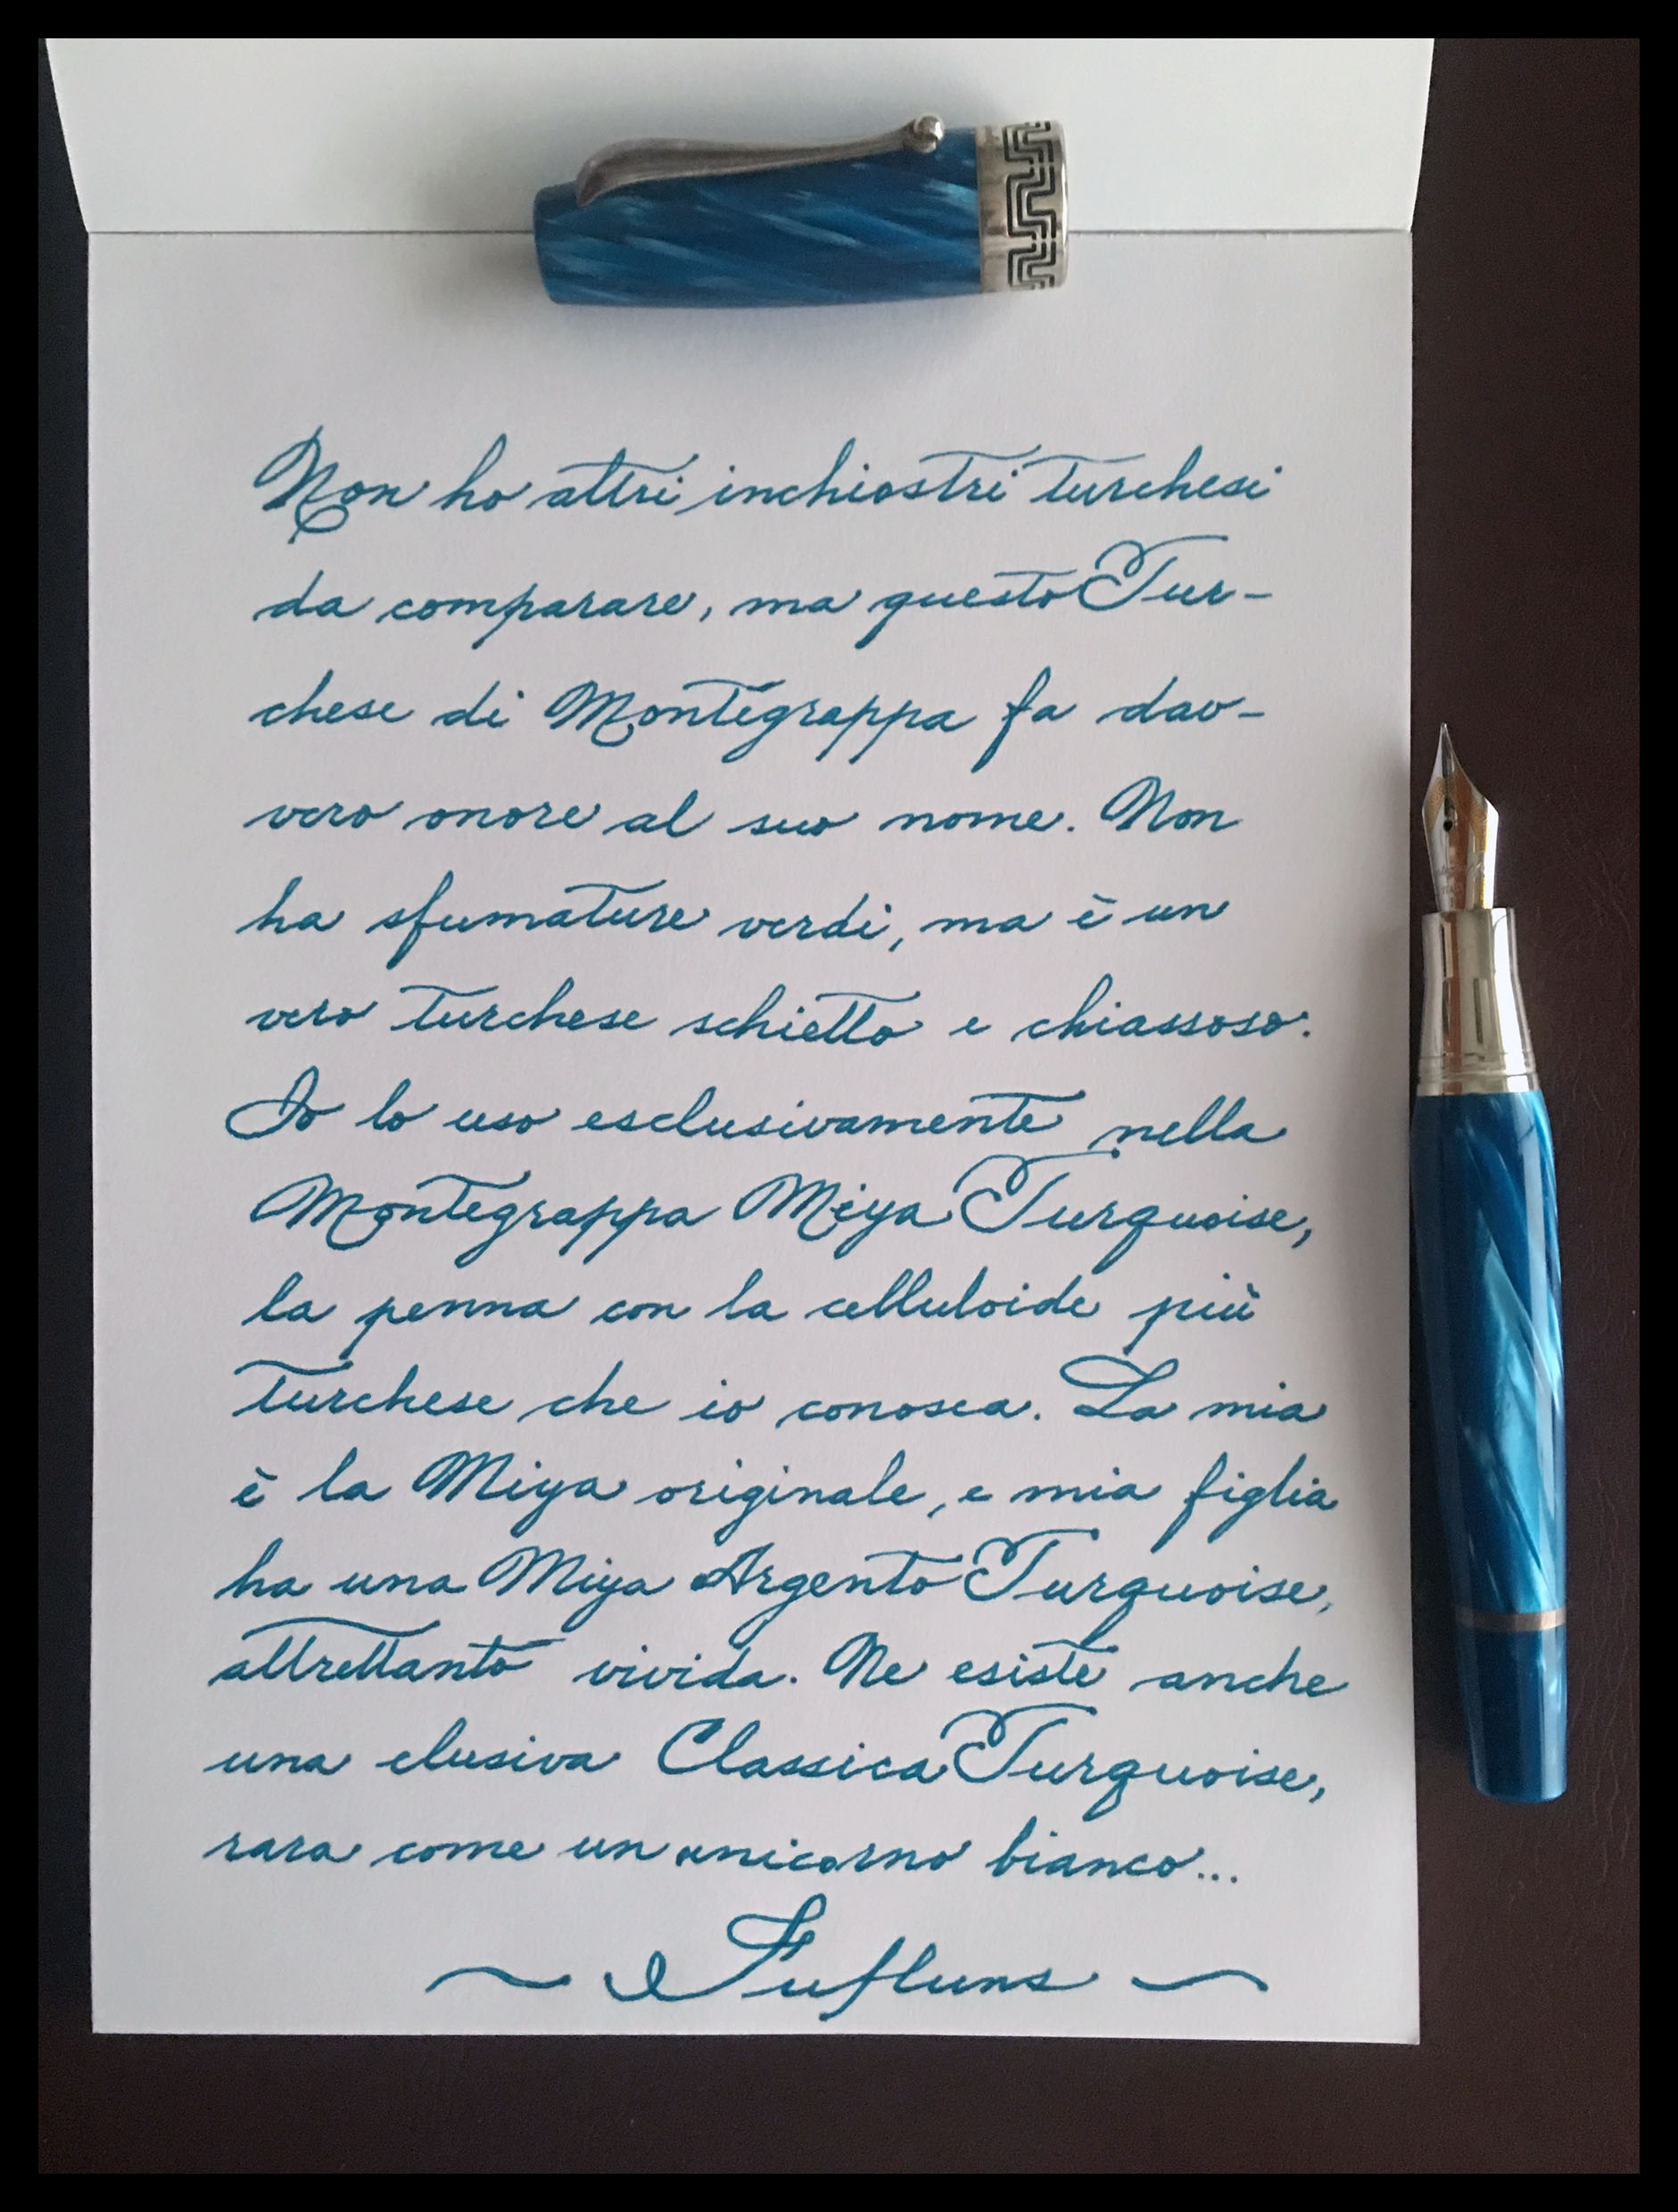 Non ho altri inchiostri turchesi
da comparare, ma questo Tur-
chese di Montegrappa fa dav-
vero onore al suo nome. Non
ha sfumature verdi, ma è un
vero turchese schietto e chiassoso.
Io lo uso esclusivamente nella
Montegrappa Miya Turquoise,
la penna con la celluloide più
turchese che io conosca. La mia
è la Miya originale, e mia figlia
ha una Miya Argento Turquoise,
altrettanto vivida. Ne esiste anche
una elusiva Classica Turquoise,
rara come un unicorno bianco...
~ Fufluns ~